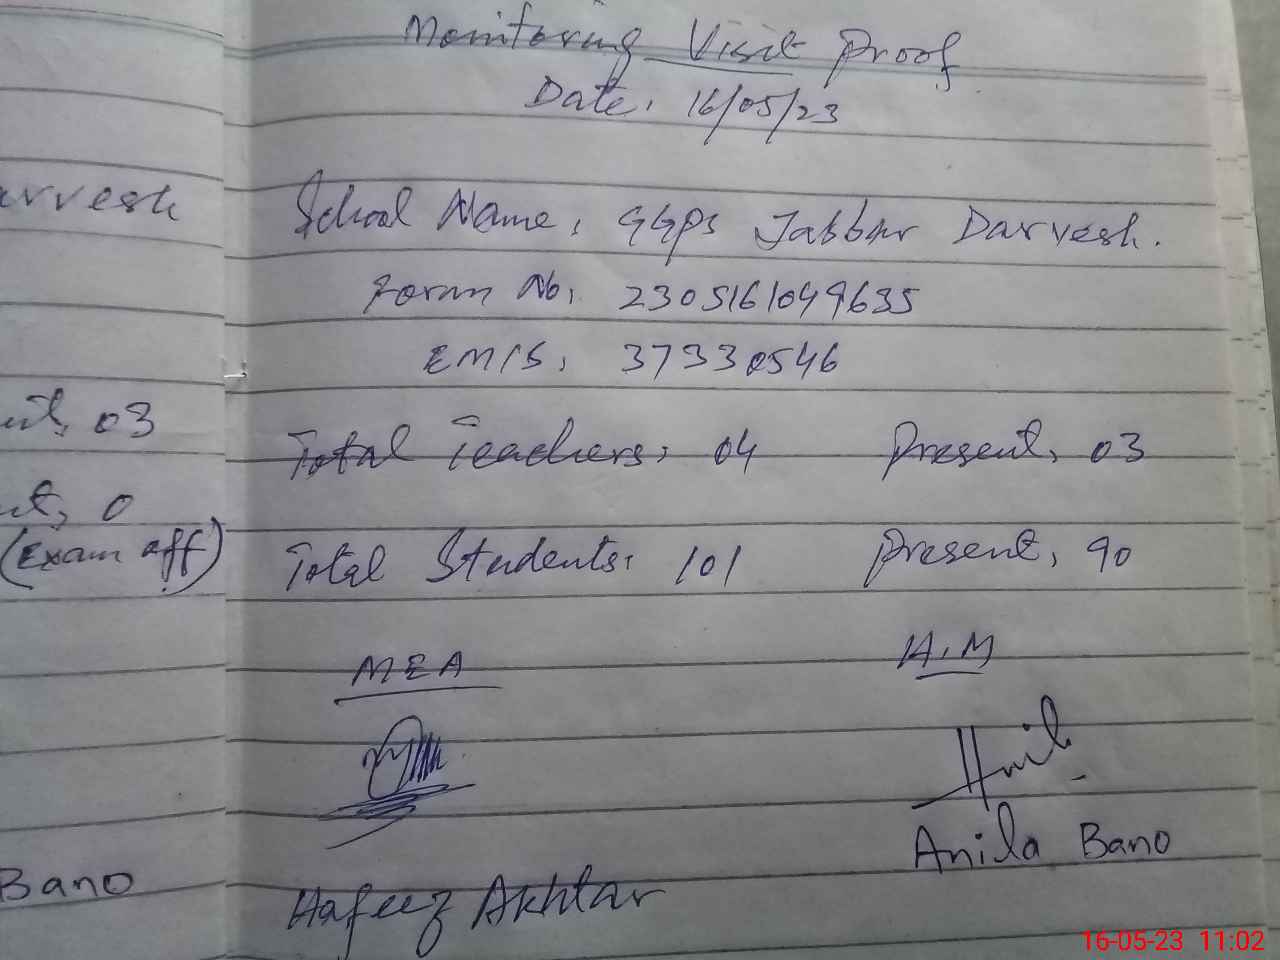 Monitoring Visit Proof
Date: 16/05/23
School Name: GGPS Jabbar Darvesh.
Foram No: 2305161049635
EMIS: 37330546
Total Teachers: 04 Present, 03
Total Students: 101 Present, 90
MEA
H.M
Anila Bano
Hafeez Akhtar
03
0
(Exam off)
Bano
16-05-23 11:02